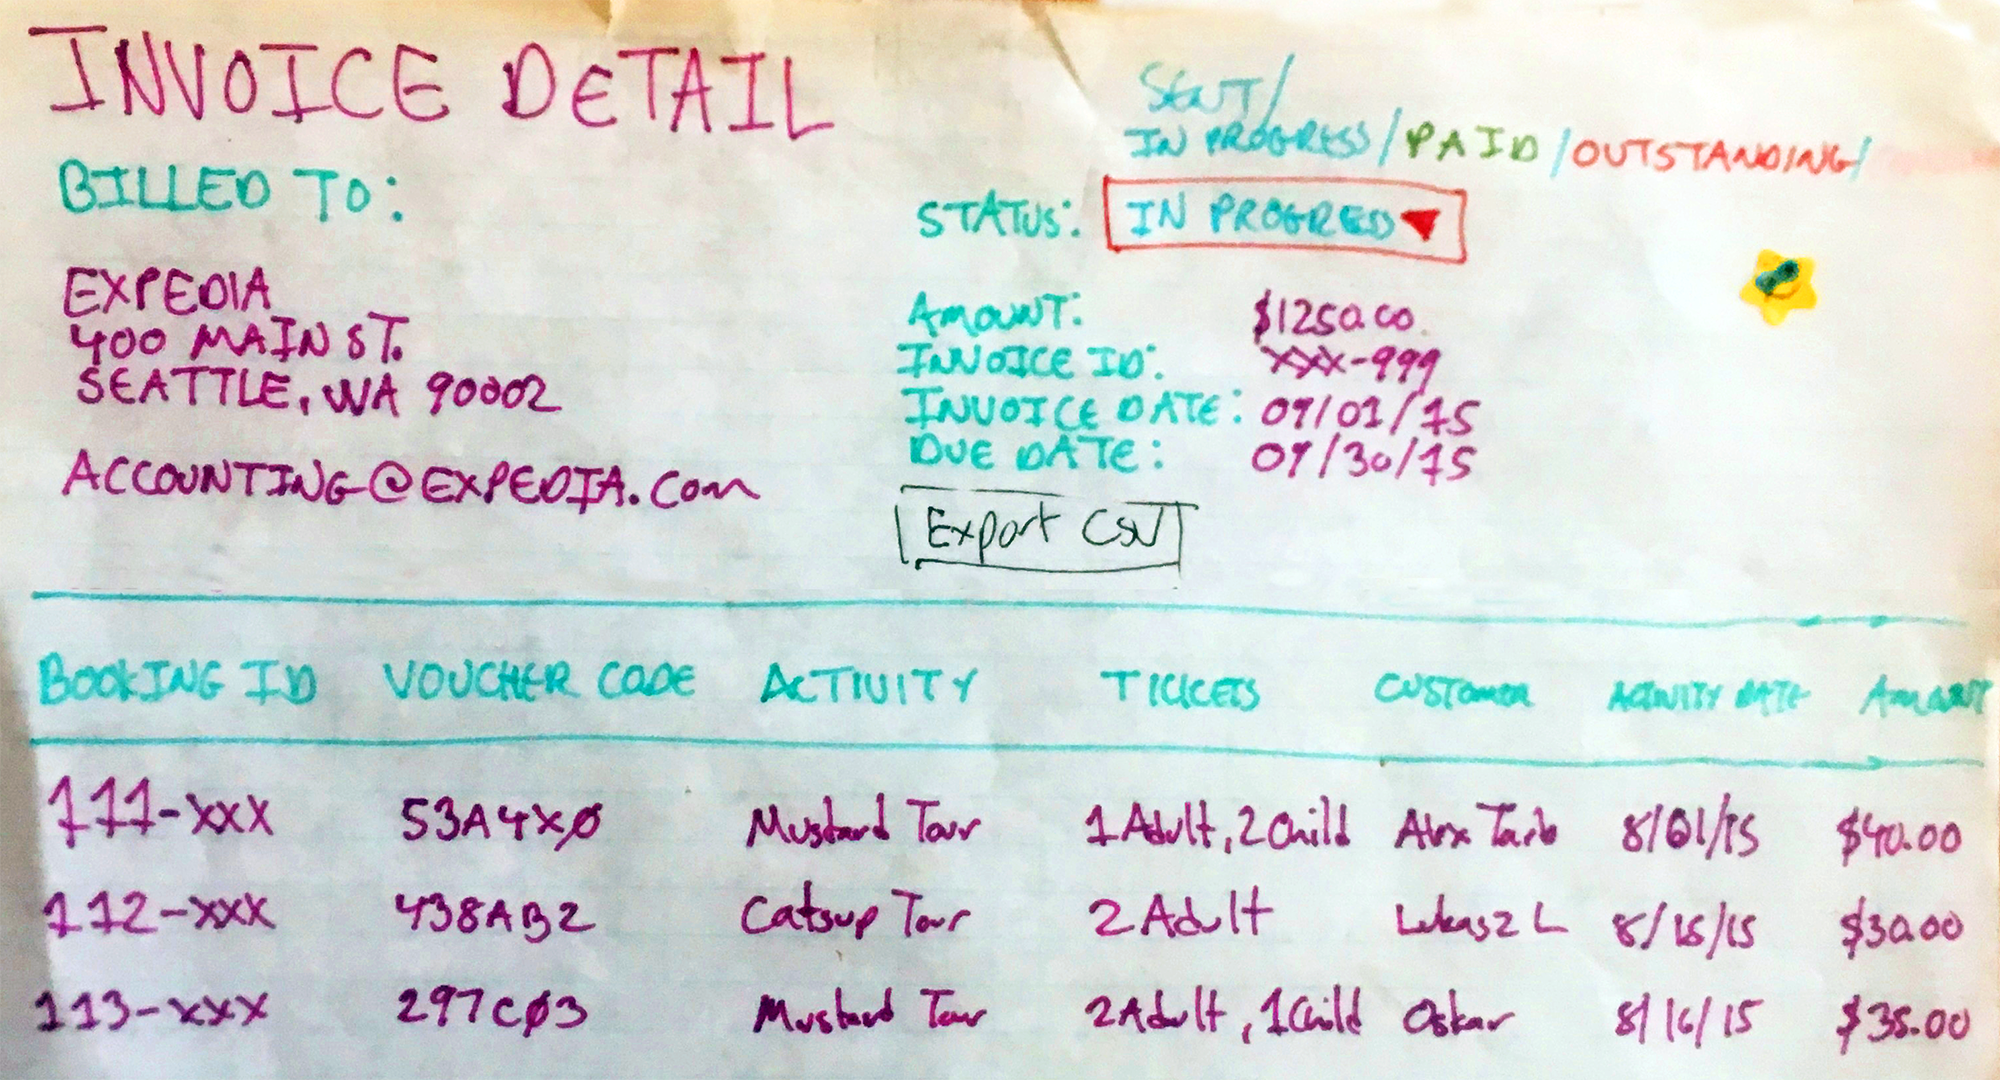 INVOICE DETAIL
SENT/
IN PROGRESS/PAID/OUTSTANDING/
BILLED TO:
STATUS: IN PROGRESS
EXPEDIA
400 MAIN ST.
SEATTLE, WA 90002
ACCOUNTING@EXPEDIA.COM
AMOUNT: $1250.00
INVOICE ID: XXX-999
INVOICE DATE: 09/01/15
DUE DATE: 09/30/15
Export CSV
BOOKING ID VOUCHER CODE ACTIVITY TICKETS CUSTOMER ACTIVITY DATE AMOUNT
111-XXX 53A4XØ Mustard Tour 1 Adult, 2 Child Alex 8/01/15 $40.00
112-XXX 438AB2 Catsup Tour 2 Adult Lukasz L 8/15/15 $30.00
113-XXX 297CØ3 Mustard Tour 2 Adult, 1 Child Oskar 8/16/15 $35.00